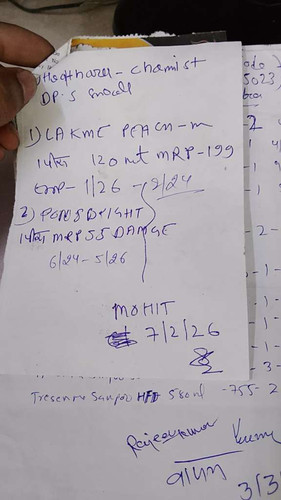 Healthcare - chemist
DP.S
1) LAKME PEACH - m
1 पीस 120 ml MRP - 199
EXP - 1/26 - 2/24
2) PONDS BRIGHT
1 पीस MRP 55 DAMAGE
6/24 - 5/26
MOHIT
7/2/26
5023)
2
- 2 -
- 1 -
- 1 -
- 1 -
- 3 -
Tresemme Sampoo HFD 580ml - 755 - 2
Rajesh Kumar
वापस
3/3